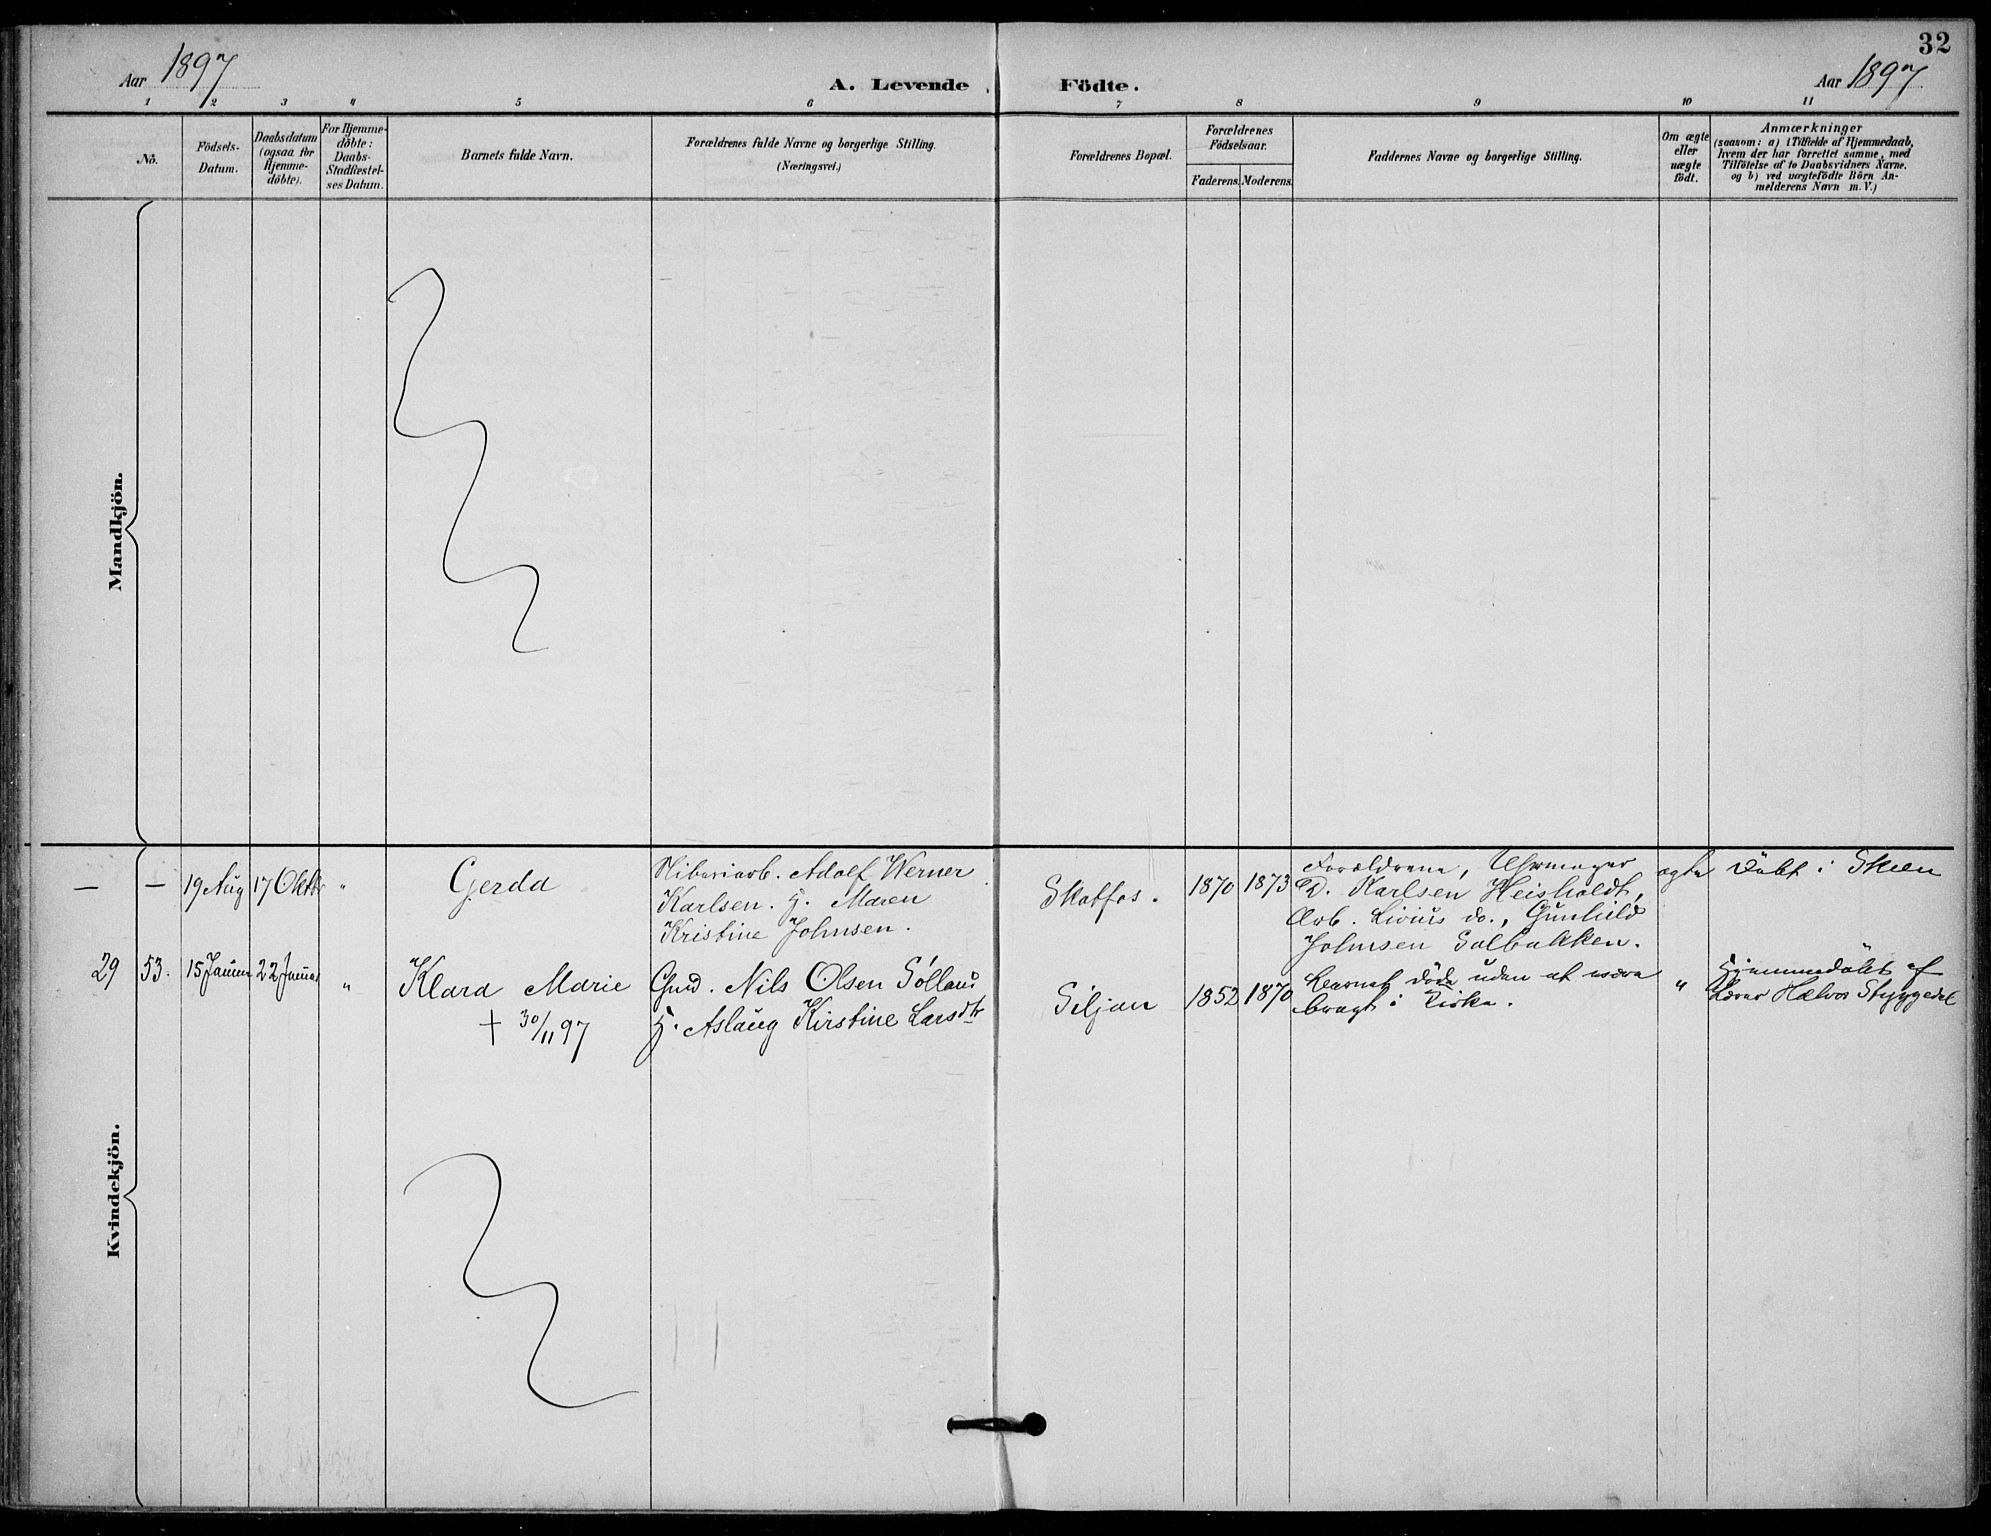 32
Aar 1897
A. Levende Födte.
Aar 1897
1 2 3 4 5 6 7 8 9 10 11
No.
Födsels-
Datum.
Daabsdatum
(ogsaa for
Hjemme-
döbte).
For Hjemme-
döbte:
Daabs-
Stadfestel-
ses Datum.
Barnets fulde Navn.
Forældrenes fulde Navne og borgerlige Stilling.
(Næringsvei.)
Forældrenes Bopæl.
Forældrenes
Födselsaar.
Faderens. Moderens.
Faddernes Navne og borgerlige Stilling.
Om ægte
eller
uægte
födt.
Anmærkninger
(saasom: a) i Tilfælde af Hjemmedaab,
hvem der har forrettet samme, med
Tilföielse af to Daabsvidners Navne.
og b) ved uægtefödte Börn An-
melderens Navn m. V.)
Mandkjön.
Kvindekjön.
— — 19 Aug 17 Oktbr "
Gerda
Sliberiarb. Adolf Werner
Karlsen. H. Maren
Kristine Johnsen.
Skotfos.
1870 1873
Forældrene, Uhrmager
D. Karlsen Heisholdt,
Arb. Livius do., Gunhild
Johnsen Solbakken.
ægte
Döbt i Skien
29 53. 15 Januar 22 Januar "
Klara Marie
† 30/11 97
Gmd. Nils Olsen Sölland
H. Aslaug Kirstine Larsdtr
Siljan
1852 1870
Barnet döde uden at være
bragt i Kirke.
"
Hjemmedöbt af
Lærer Halvor Styggedal